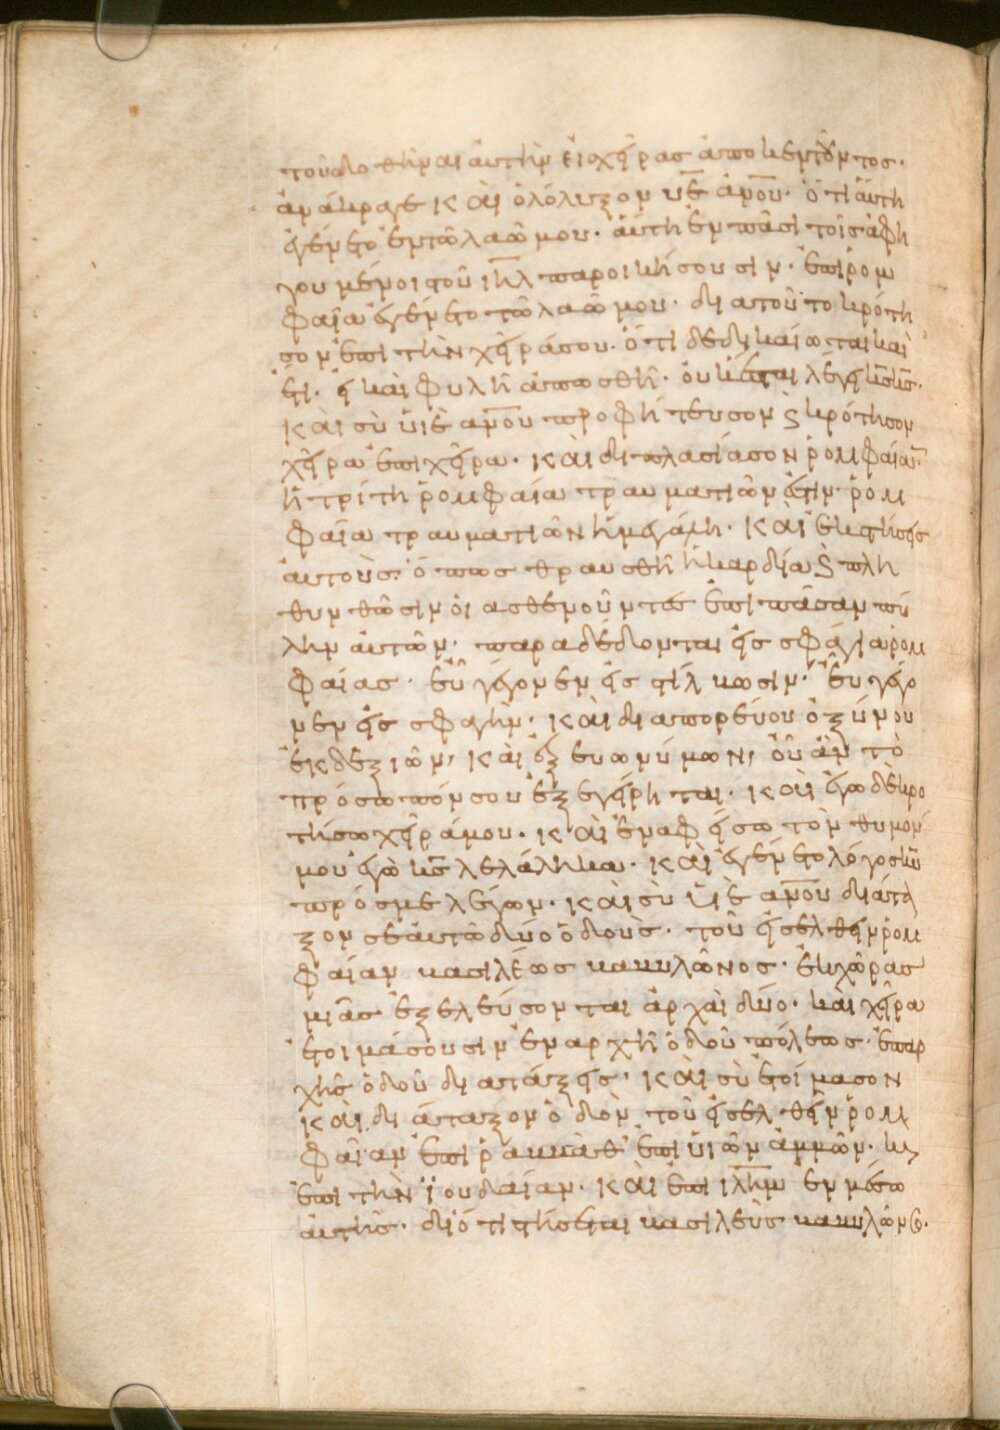 τοῦ δοθῆναι αὐτὴν εἰς χεῖρας ἀποκεντοῦντος·
ἀνάκραγε καὶ ὀλόλυξον υἱὲ ἀνου· ὅτι αὕτη
ἐγένετο ἐν τῶ λαῶ μου· αὕτη ἐν πᾶσι τοῖς ἀφη
γουμένοις τοῦ ιηλ παροικήσουσιν· ἐπὶ ῥομ
φαία ἐγένετο τῶ λαῶ μου· διατοῦτο κρότη
σον ἐπὶ τὴν χεῖρά σου· ὅτι δεδικαίωται καὶ
τί· εἰ καὶ φυλὴ ἀπωσθῆ· οὐκ ἔσται λέγει κς κς·
καὶ σὺ υἱὲ ανου προφήτευσον καὶ κρότησον
χεῖρα ἐπὶ χεῖρα· καὶ διπλασίασον ῥομφαίαν·
ἡ τρίτη ῥομφαία τραυματιῶν ἐστιν· ῥομ
φαία τραυματιῶν ἡ μεγάλη· καὶ ἐκστήσεις
αὐτοὺς· ὅπως θραυσθῆ ἡ καρδία καὶ πλη
θυνθῶσιν οἱ ἀσθενοῦντες ἐπὶ πᾶσαν πύ
λην αὐτῶν· παραδέδονται εἰς σφάγια ῥομ
φαίας· εὖ γέγονεν εἰς στίλβωσιν· εὖ γέγο
νεν εἰς σφαγὴν· καὶ διαπορεύου ὀξύνου
ἐκ δεξιῶν, καὶ ἐξ εὐωνύμων, οὗ ἂν τὸ
πρόσωπόν σου ἐξεγείρηται· καὶ ἐγὼ δὲ κρο
τήσω χεῖρά μου· καὶ ἐναφήσω τὸν θυμόν
μου ἐγὼ κς λελάληκα· καὶ ἐγένετο λόγος κυ
πρός με λέγων· καὶ σὺ υἱὲ ανου διάτα
ξον σεαυτῶ δύο ὁδοὺς· τοῦ εἰσελθεῖν ῥομ
φαίαν βασιλέως βαβυλῶνος· ἐκ χώρας
μιᾶς ἐξελεύσονται ἀρχαὶ δύο· καὶ χεῖρα
ἑτοιμάσουσιν ἐν ἀρχῆ ὁδοῦ πόλεως· ἐπαρ
χῆς ὁδοῦ διατάξεις· καὶ σὺ ἑτοίμασον
καὶ διάταξον ὁδὸν τοῦ εἰσελθεῖν ῥομ
φαίαν ἐπὶ ῥαββὰθ ἐπὶ υἱῶν ἀμμῶν· καὶ
ἐπὶ τὴν ἰουδαίαν· καὶ ἐπὶ ιλημ ἐν μέσω
αὐτῆς· διότι στήσεται βασιλεὺς βαβυλῶνος·